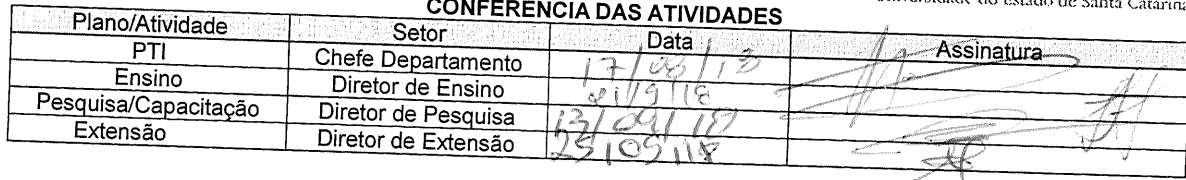 Universidade do Estado de Santa Catarina
CONFERÊNCIA DAS ATIVIDADES
Plano/Atividade Setor Data Assinatura
PTI Chefe Departamento
Ensino Diretor de Ensino 21/9/18
Pesquisa/Capacitação Diretor de Pesquisa 13/09/18
Extensão Diretor de Extensão 25/09/18